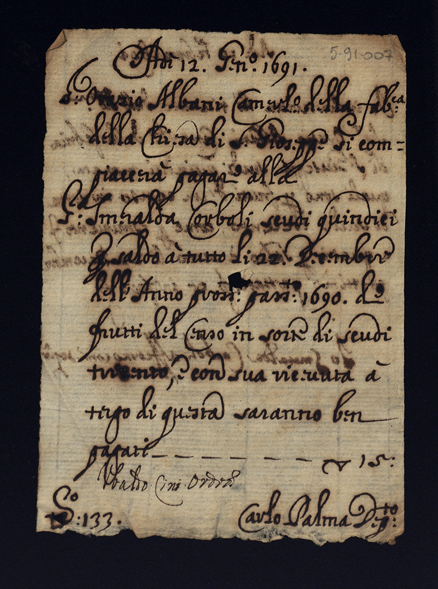 Adi 12. Gen.º 1691. 5-91-007
S.r Orazio Albani Camerl.º della fab.ca
della Chiesa di S. Gioseppe Si com=
piacerà pagar.e alla
S.ra Smeralda Corboli scudi quindici
p saldo à tutto li 22. Decembre
dell'Anno pross: pass.to 1690. de
frutti del Censo in sorte di scudi
trecento, e con sua ricevuta à
tergo di questa saranno ben
pagati ▽ 15:
Ubaldo Cini Ordin.
S.º: 133. Carlo Palma Dep.to: